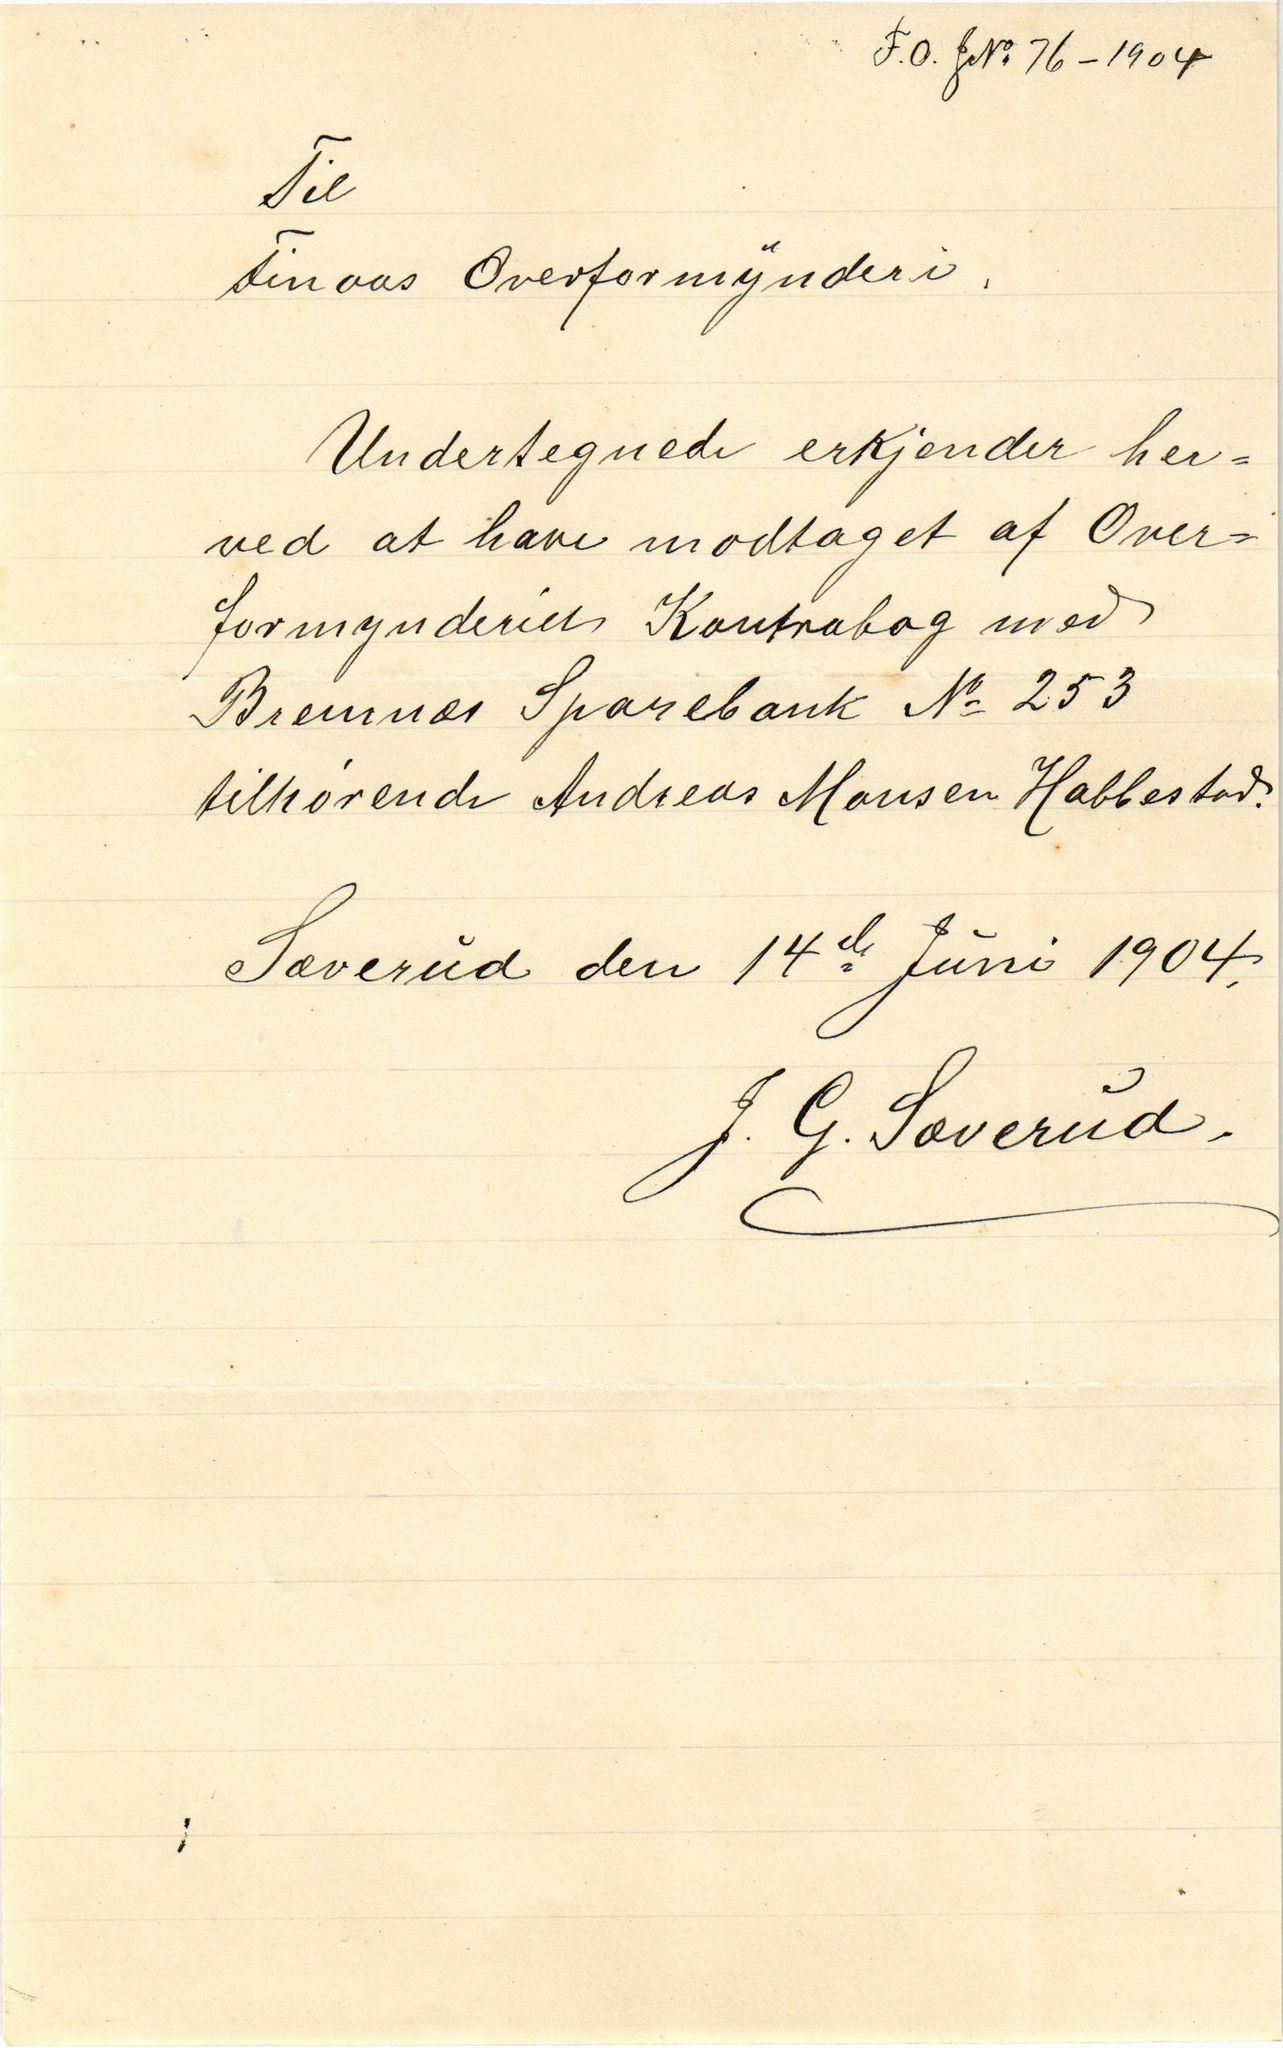 F.O. JNo 76 - 1904
Til
Finaas Overformÿnderi.
Undertegnede erkjender her=
ved at have modtaget af Over=
formynderiets Kontrabog med
Bremnæs Sparebank No 253
tilhørende Andreas Monsen Habbestad.
Sæverud den 14de Juni 1904.
J. G. Sæverud.